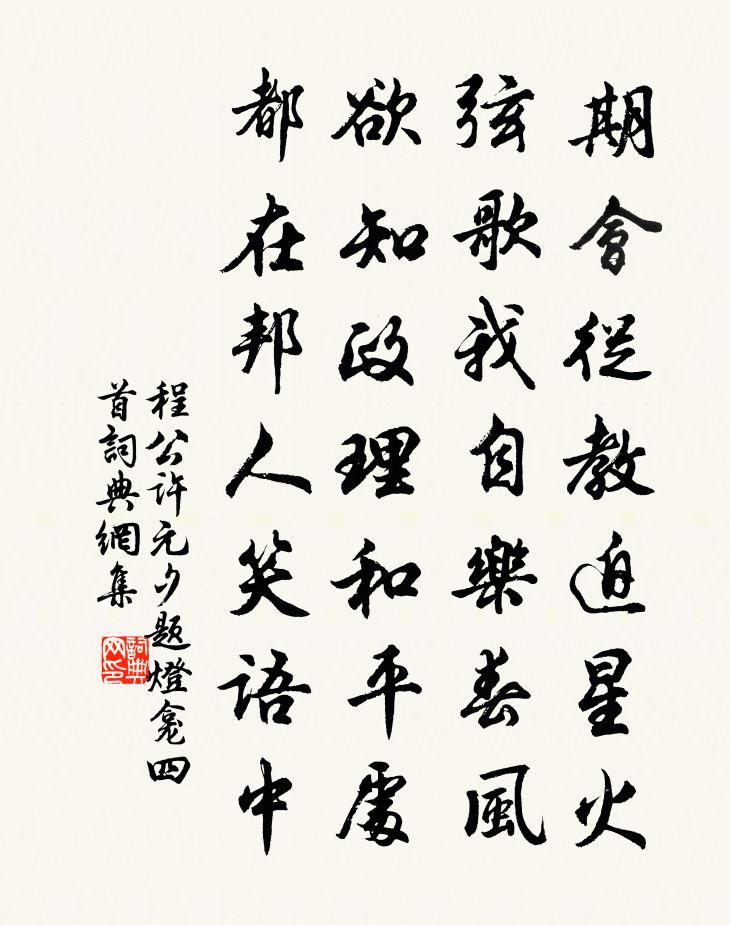 期會從教迫星火
弦歌我自樂春風
欲知政理和平處
都在邦人笑語中
程公許元夕題燈龕四
首詞典網集
詞典网印